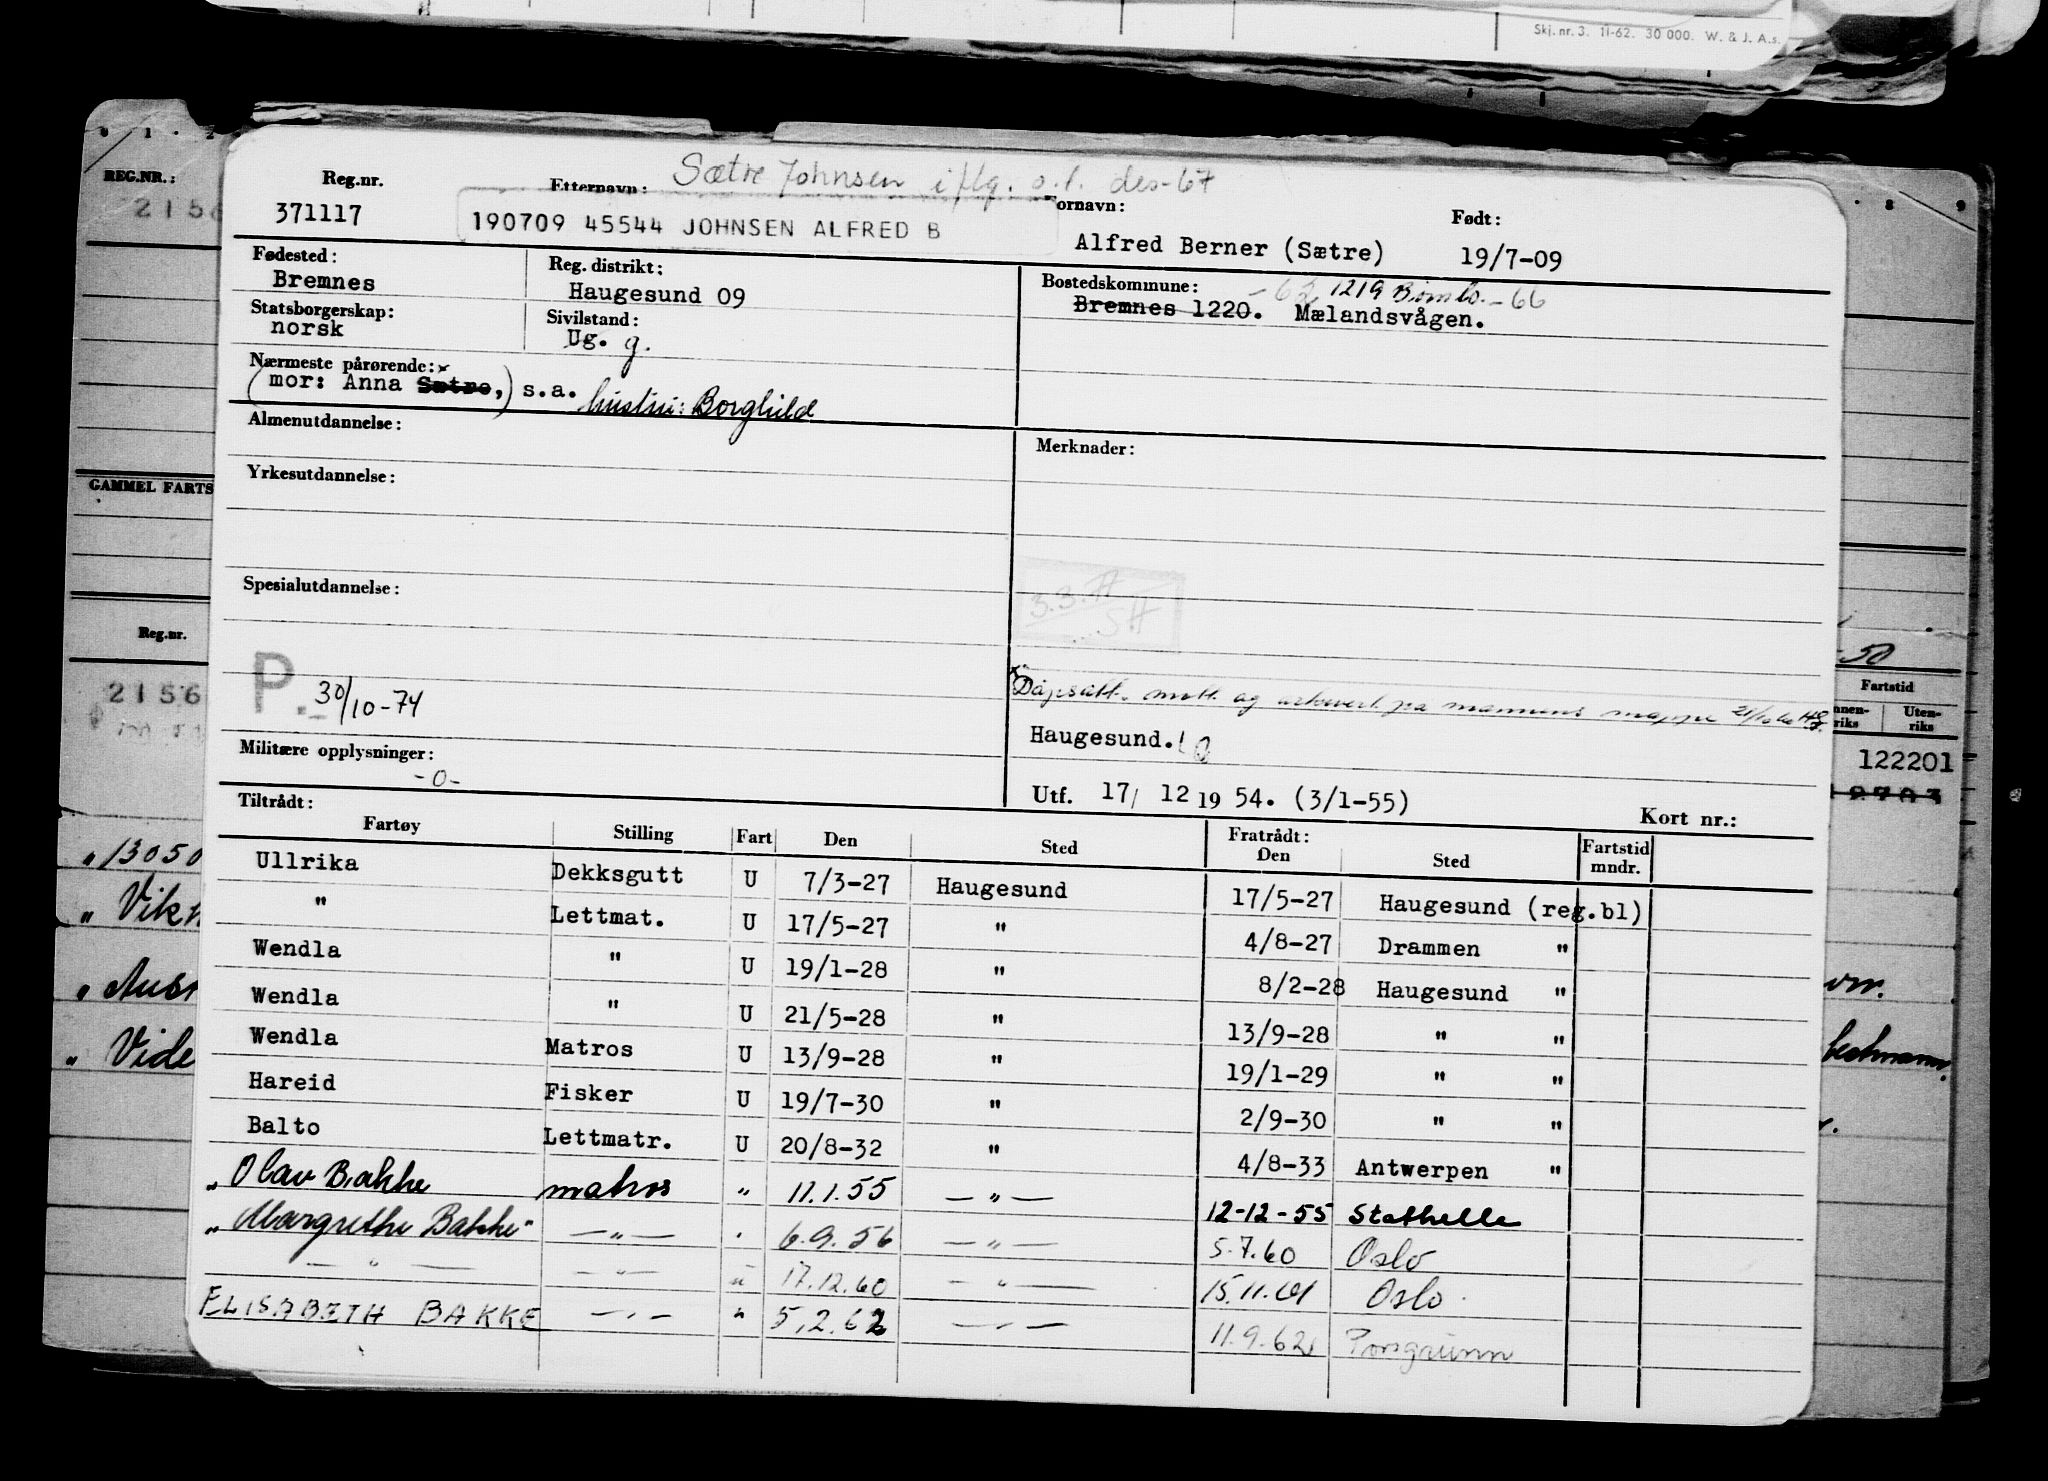 Skj. nr. 3. 11-62. 30 000. W. & J. A.s.
REG.NR.:
GAMMEL FARTS
Reg.nr.
2156
„ 13050
„ Vik
„ Vide
50
Fartstid
Uten-
riks
122201
Sætre Johnsen iflg. s.l. des-67
Reg.nr. Etternavn: Fornavn: Født:
371117 190709 45544 JOHNSEN ALFRED B Alfred Berner (Sætre) 19/7-09
Fødested: Reg. distrikt: Bostedskommune: -62 1219 Bømlo -66
Bremnes Haugesund 09 Bremnes 1220. Mælandsvågen.
Statsborgerskap: Sivilstand:
norsk Ug. g.
Nærmeste pårørende: x
(mor: Anna Sætre,) s.a. hustru: Borghild
Almenutdannelse: Merknader:
Yrkesutdannelse:
Spesialutdannelse:
3.3.
SH
P. 30/10-74
x Dåpsatt. mott. og arkivert på mannens mappe
Haugesund.
Militære opplysninger:
-0-
Utf. 17/ 12 19 54. (3/1-55) Kort nr.:
Tiltrådt: Fratrådt:
Fartøy Stilling Fart Den Sted Den Sted Fartstid mndr.
Ullrika Dekksgutt U 7/3-27 Haugesund 17/5-27 Haugesund (reg.bl)
" Lettmat. U 17/5-27 " 4/8-27 Drammen "
Wendla " U 19/1-28 " 8/2-28 Haugesund "
Wendla " U 21/5-28 " 13/9-28 " "
Wendla Matros U 13/9-28 " 19/1-29 " "
Hareid Fisker U 19/7-30 " 2/9-30 " "
Balto Lettmatr. U 20/8-32 " 4/8-33 Antwerpen "
„ Olav Bakke matros " 11.1.55 — " — 12-12-55 Stathelle
„ Margrethe Bakke" — " — " 6.9.56 — " — 5.7.60 Oslo
— " — — " — " 17.12.60 — " — 15.11.61 Oslo
ELISABETH BAKKE — " — " 5.2.62 — " — 11.9.62 Porsgrunn